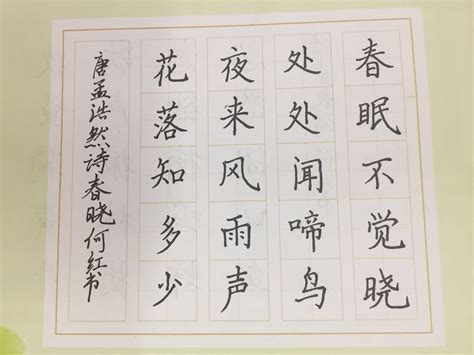 春眠不觉晓
处处闻啼鸟
夜来风雨声
花落知多少
唐孟浩然诗春晓何红书